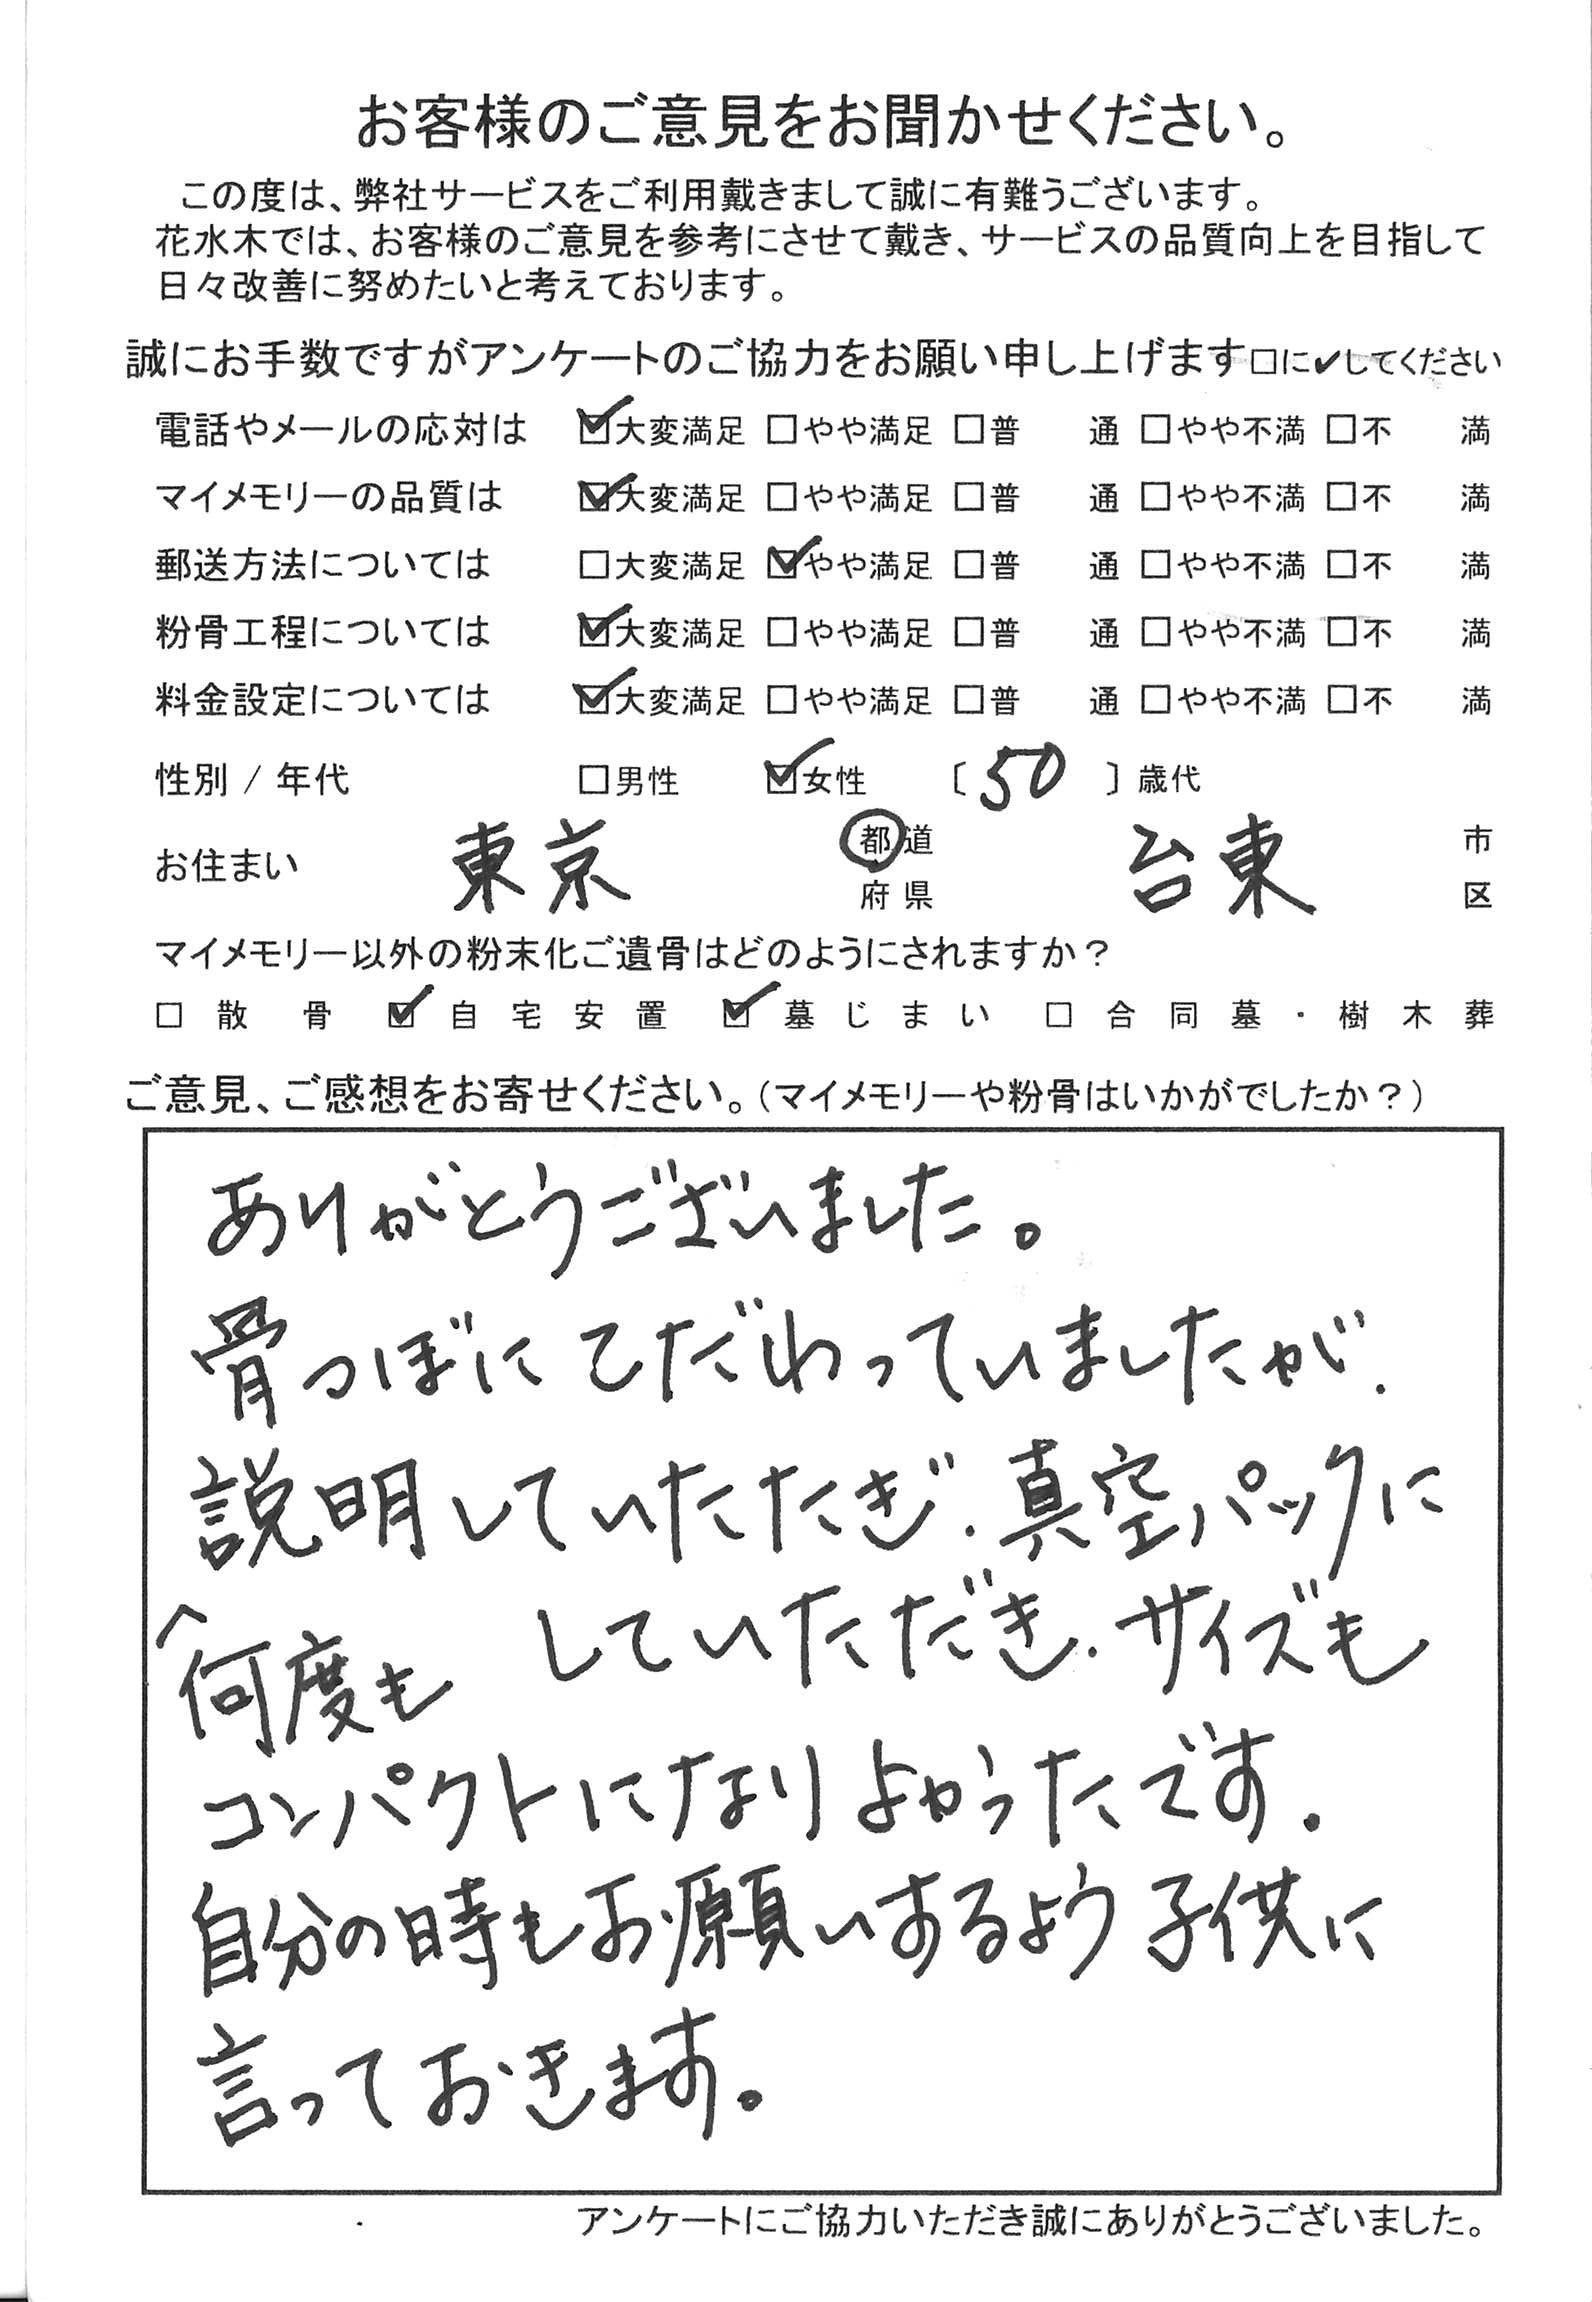 お客様のご意見をお聞かせください。
この度は、弊社サービスをご利用戴きまして誠に有難うございます。
花水木では、お客様のご意見を参考にさせて戴き、サービスの品質向上を目指して
日々改善に努めたいと考えております。
誠にお手数ですがアンケートのご協力をお願い申し上げます□に✔してください
電話やメールの応対は ☑大変満足 □やや満足 □普 通 □やや不満 □不 満
マイメモリーの品質は ☑大変満足 □やや満足 □普 通 □やや不満 □不 満
郵送方法については □大変満足 ☑やや満足 □普 通 □やや不満 □不 満
粉骨工程については ☑大変満足 □やや満足 □普 通 □やや不満 □不 満
料金設定については ☑大変満足 □やや満足 □普 通 □やや不満 □不 満
性別 / 年代 □男性 ☑女性 〔 50 〕歳代
お住まい 東京 都道府県 台東 市区
マイメモリー以外の粉末化ご遺骨はどのようにされますか？
□ 散骨 ☑ 自宅安置 ☑ 墓じまい □ 合同墓・樹木葬
ご意見、ご感想をお寄せください。（マイメモリーや粉骨はいかがでしたか？）
ありがとうございました。
骨つぼにこだわっていましたが、
説明していたたぎ、真空パックに
^何度も していただき、サイズも
コンパクトになりよかったです。
自分の時もお願いするよう子供に
言っておきます。
アンケートにご協力いただき誠にありがとうございました。